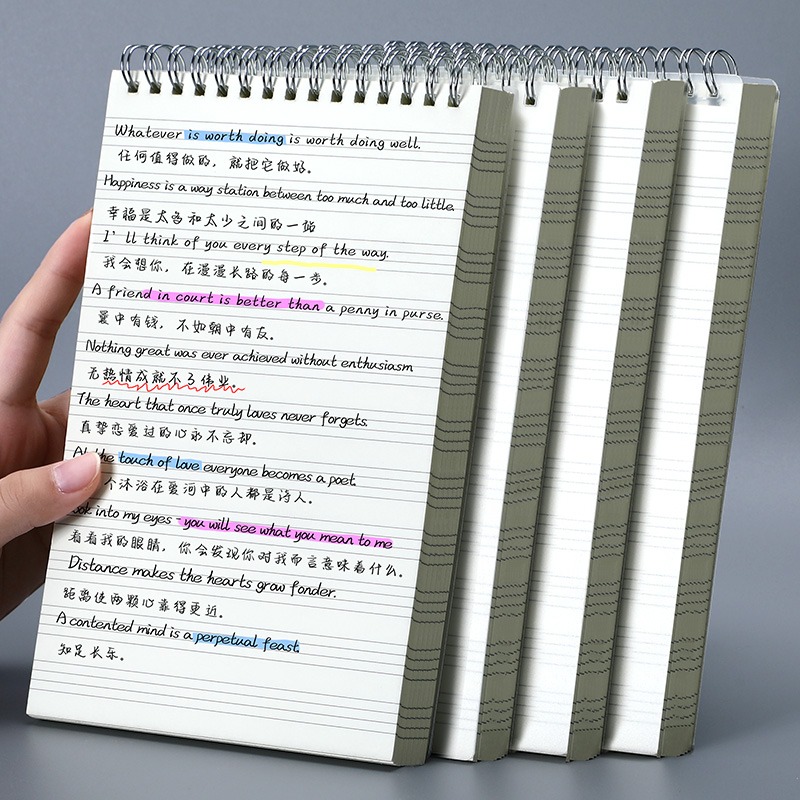 Whatever is worth doing is worth doing well.
任何值得做的，就把它做好。
Happiness is a way station between too much and too little.
幸福是太多和太少之间的一站
I'll think of you every step of the way.
我会想你，在漫漫长路的每一步。
A friend in court is better than a penny in purse.
囊中有钱，不如朝中有友。
Nothing great was ever achieved without enthusiasm
无热情成就不了伟业。
The heart that once truly loves never forgets.
真挚恋爱过的心永不忘却。
At the touch of love everyone becomes a poet.
个沐浴在爱河中的人都是诗人。
into my eyes - you will see what you mean to me
看看我的眼睛，你会发现你对我而言意味着什么。
Distance makes the hearts grow fonder.
距离使两颗心靠得更近。
A contented mind is a perpetual feast.
知足长乐。